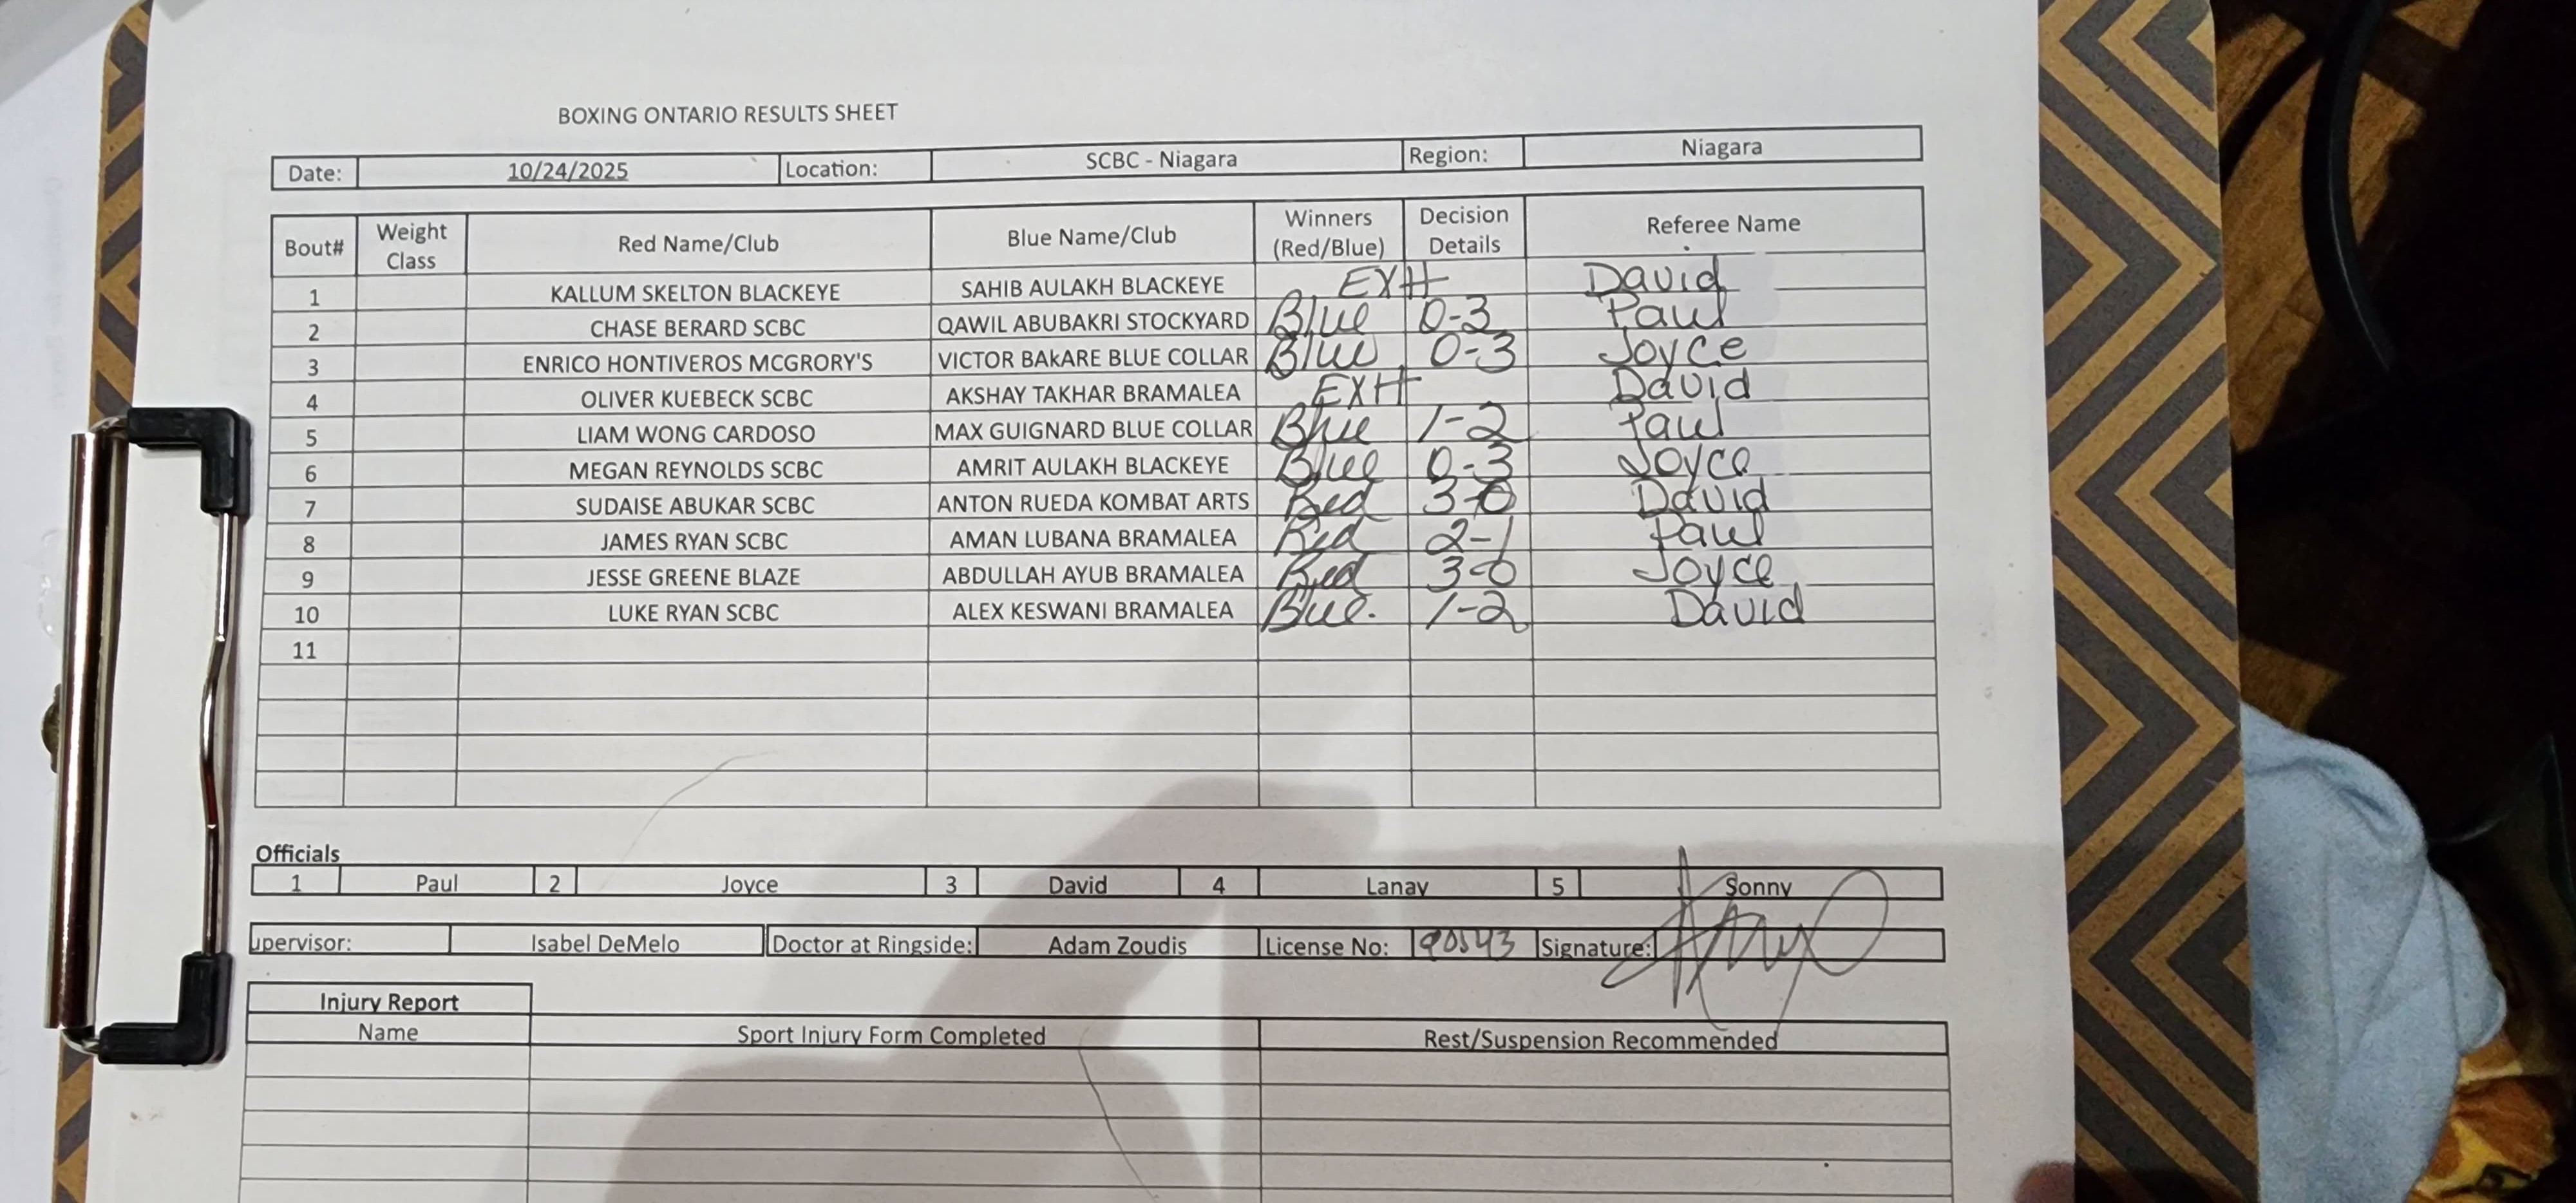 BOXING ONTARIO RESULTS SHEET
Date: 10/24/2025 Location: SCBC - Niagara Region: Niagara
Bout# Weight Class Red Name/Club Blue Name/Club Winners (Red/Blue) Decision Details Referee Name
1 KALLUM SKELTON BLACKEYE SAHIB AULAKH BLACKEYE EXH David
2 CHASE BERARD SCBC QAWIL ABUBAKRI STOCKYARD Blue 0-3 Paul
3 ENRICO HONTIVEROS MCGRORY'S VICTOR BAkARE BLUE COLLAR Blue 0-3 Joyce
4 OLIVER KUEBECK SCBC AKSHAY TAKHAR BRAMALEA EXH David
5 LIAM WONG CARDOSO MAX GUIGNARD BLUE COLLAR Blue 1-2 Paul
6 MEGAN REYNOLDS SCBC AMRIT AULAKH BLACKEYE Blue 0-3 Joyce
7 SUDAISE ABUKAR SCBC ANTON RUEDA KOMBAT ARTS Red 3-0 David
8 JAMES RYAN SCBC AMAN LUBANA BRAMALEA Red 2-1 Paul
9 JESSE GREENE BLAZE ABDULLAH AYUB BRAMALEA Red 3-0 Joyce
10 LUKE RYAN SCBC ALEX KESWANI BRAMALEA Blue. 1-2 David
11
Officials
1 Paul 2 Joyce 3 David 4 Lanay 5 Sonny
upervisor: Isabel DeMelo Doctor at Ringside: Adam Zoudis License No: Signature:
Injury Report
Name Sport Injury Form Completed Rest/Suspension Recommended